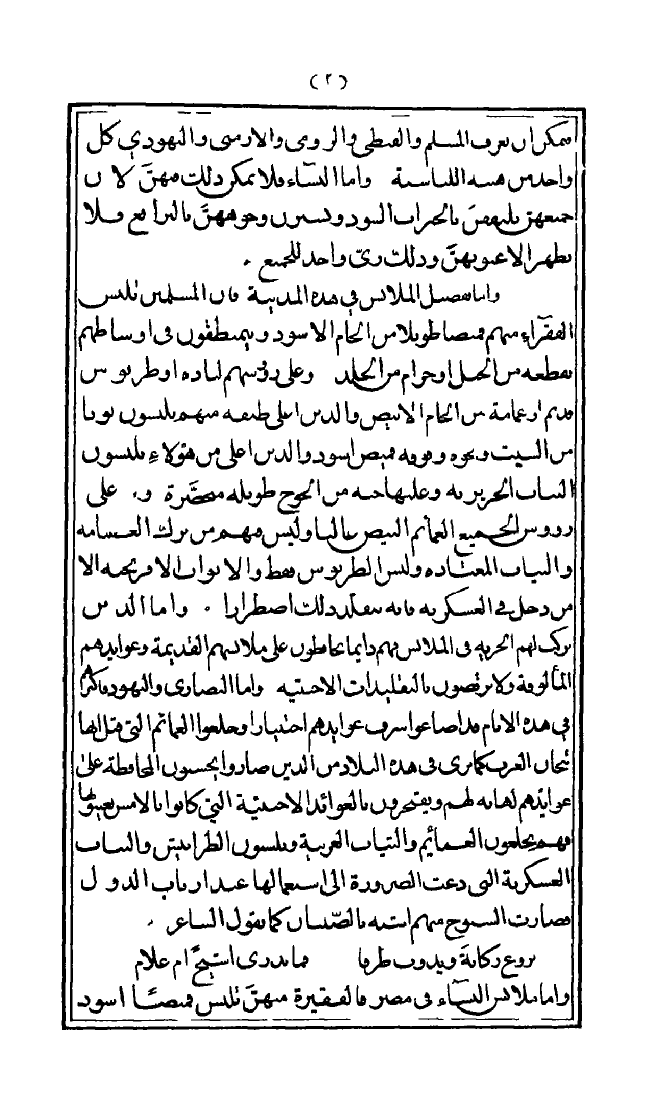 (٢)
فيمكن ان يعرف المسلم والقبطي والرومي والارمني واليهودي كل
واحد من هيئة اللباسية واما النساء فلا يمكن ذلك منهنّ لان
جميعهن يلتففنَ بالحبرات السود ويسترن وجوههنَّ بالبراقع فلا
يظهر الا عيونهنَّ وذلك زيّ واحد للجميع .
واما تفصيل الملابس في هذه المدينة فان المسلمين تلبس
الفقرآء منهم قميصا طويلا من الخام الاسود ويتمنطقون في اوساطهم
بقطعه من الحبل او حزام من الجلد وعلى رؤسهم لباده او طربوش
قديم او عمامة من الخام الابيض والذين اعلى طبقه منهم يلبسون ثوبا
من الشيت ونحوه وفوقه قميص اسود والذين اعلى من هؤلاءِ يلبسون
الثياب الحريريه وعليها جبه من الجوخ طويله مقصّرة و، على
رووس الجميع العمائم البيض غالبا وليس منهم من ترك العمامه
والثياب المعتاده ولبس الطربوش فقط والاثواب الافرنجيه الا
من دخل في العسكريه فانه يتقلد ذلك اضطرارا . واما الذين
ترك لهم الحريه في الملابس فهم دايما يحافظون على ملابسهم القديمة وعوايدهم
المألوفة ولا يرضون بالتقليدات الاجنبيه واما النصارى واليهود فاكثرهم
في هذه الايام قد اضاعوا شرف عوايدهم اختيارا وخلعوا العمائم التي قيل انها
تيجان العرب كما نرى في هذه البلاد من الذين صاروا يحسبون المحافظة على
عوايدهم اهانه لهم ويفتخرون بالعوائد الاجنبية التي كانوا بالامس يعيبونها
فهم يخلعون العمائيم والثياب العربية ويلبسون الطرابيش والثياب
العسكرية التي دعت الضرورة الى استعمالها عند ارباب الدول
فصارت الشيوخ منهم اشبه بالصبيان كما يقول الشاعر .
يروع ركانة ويذوب ظرفا فما ندري اشيخٌ ام غلام
واما ملابس النسآء في مصر فالفقيرة منهنّ تلبس قميصًا اسود